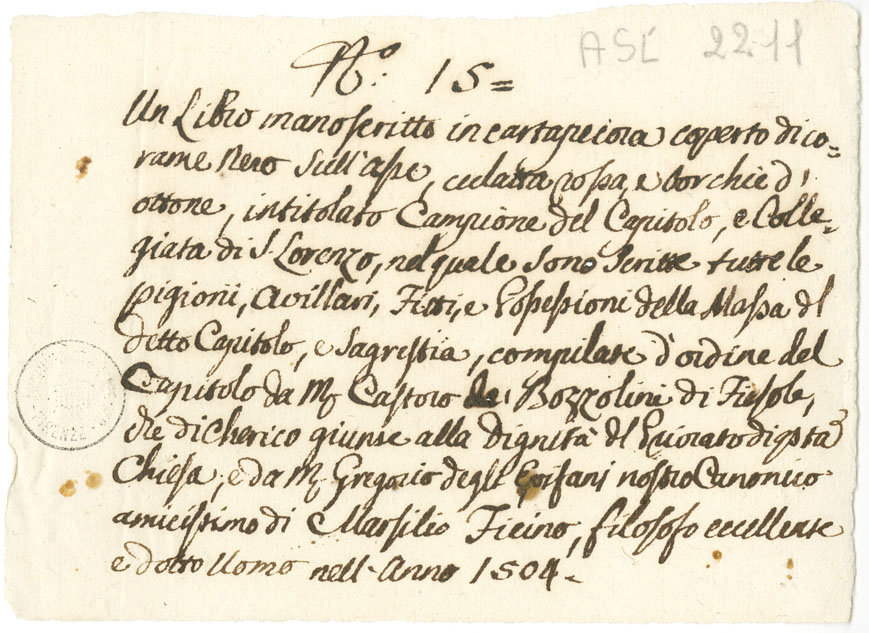 ASL 2211
N.º 15=
Un Libro manoscritto in cartapecora coperto di co=
rame nero sull'asse, culatta rossa, e borchie d'
ottone, intitolato Campione del Capitolo, e Colle=
giata di S. Lorenzo, nel quale sono scritte tutte le
pigioni, Avillari, Fitti, e Possessioni della Massa dl
detto Capitolo, e Sagrestia, compilate d'ordine del
Capitolo da Mr Castoro de' Bozzolini di Fiesole,
che di cherico giunse alla dignità dl Priorato di qsta
Chiesa, e da Mr Gregorio degli Epifani nostro Canonico
amicissimo di Marsilio Ficino, filosofo eccellente
e dotto Uomo nell'Anno 1504.
FIRENZE